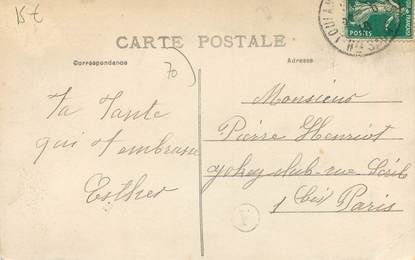 15€
CARTE POSTALE
Correspondance
Adresse
70
Ta Tante
qui t'embrasse
Esther
Monsieur
Pierre Henriot
Jokey club rue Scrib
1 bis Paris
POSTES